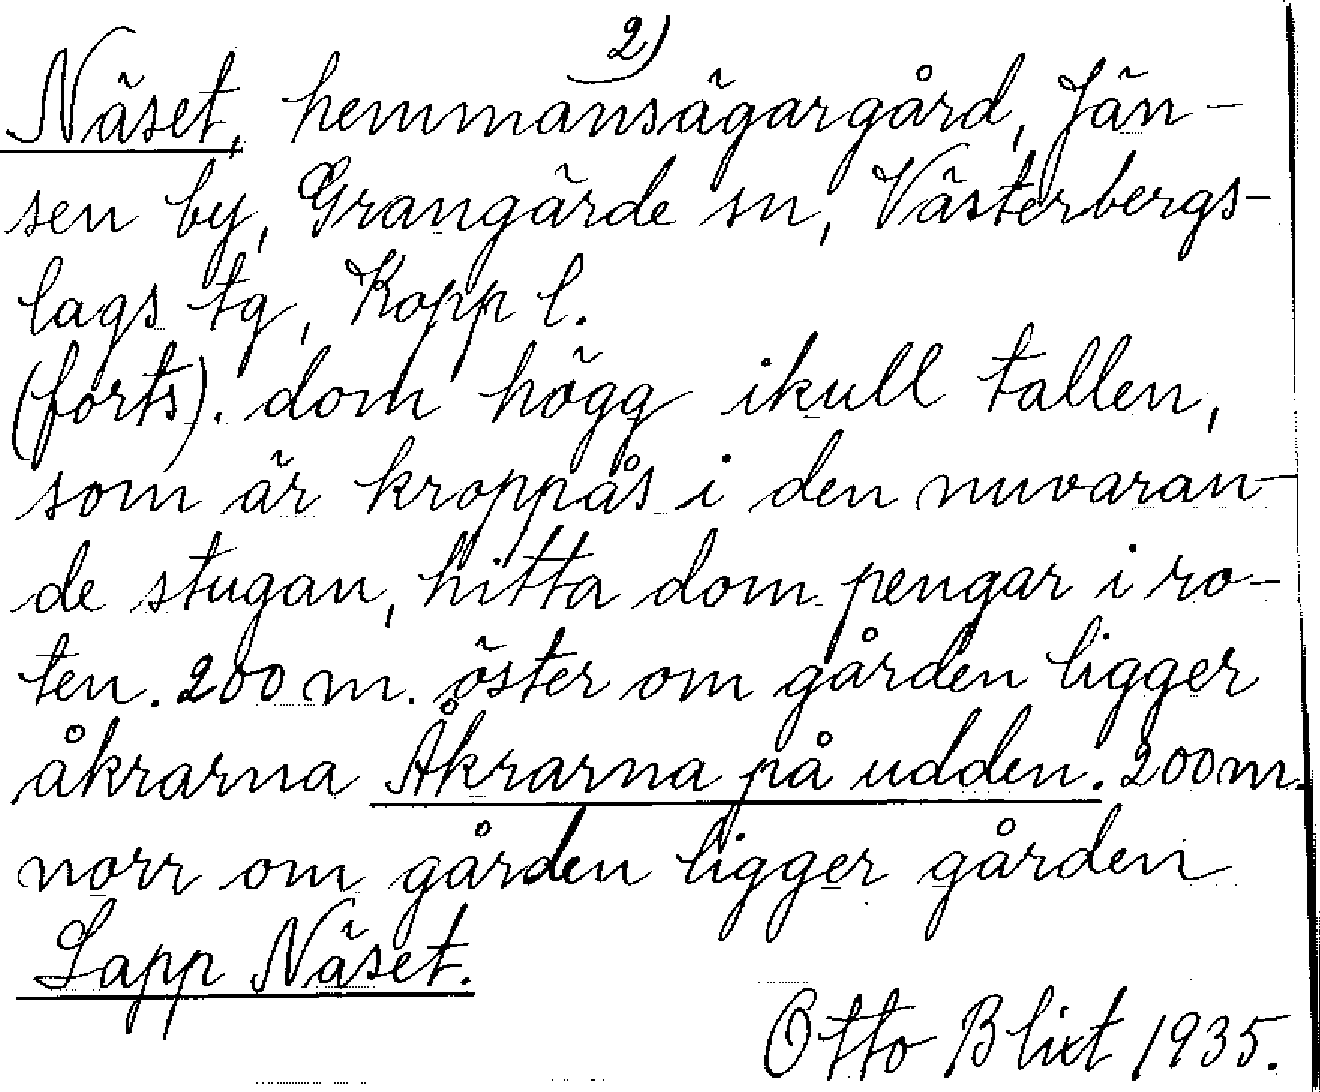 2)
Näset, hemmansägargård, Jän-
sen by, Grangärde sn, Västerbergs-
lags tg, Kopp l.
(forts). dom högg ikull tallen,
som är kroppås i den nuvaran-
de stugan, hitta dom pengar i ro-
ten. 200 m. öster om gården ligger
åkrarna Åkrarna på udden. 200 m.
norr om gården ligger gården
Lapp Näset.
Otto Blixt 1935.